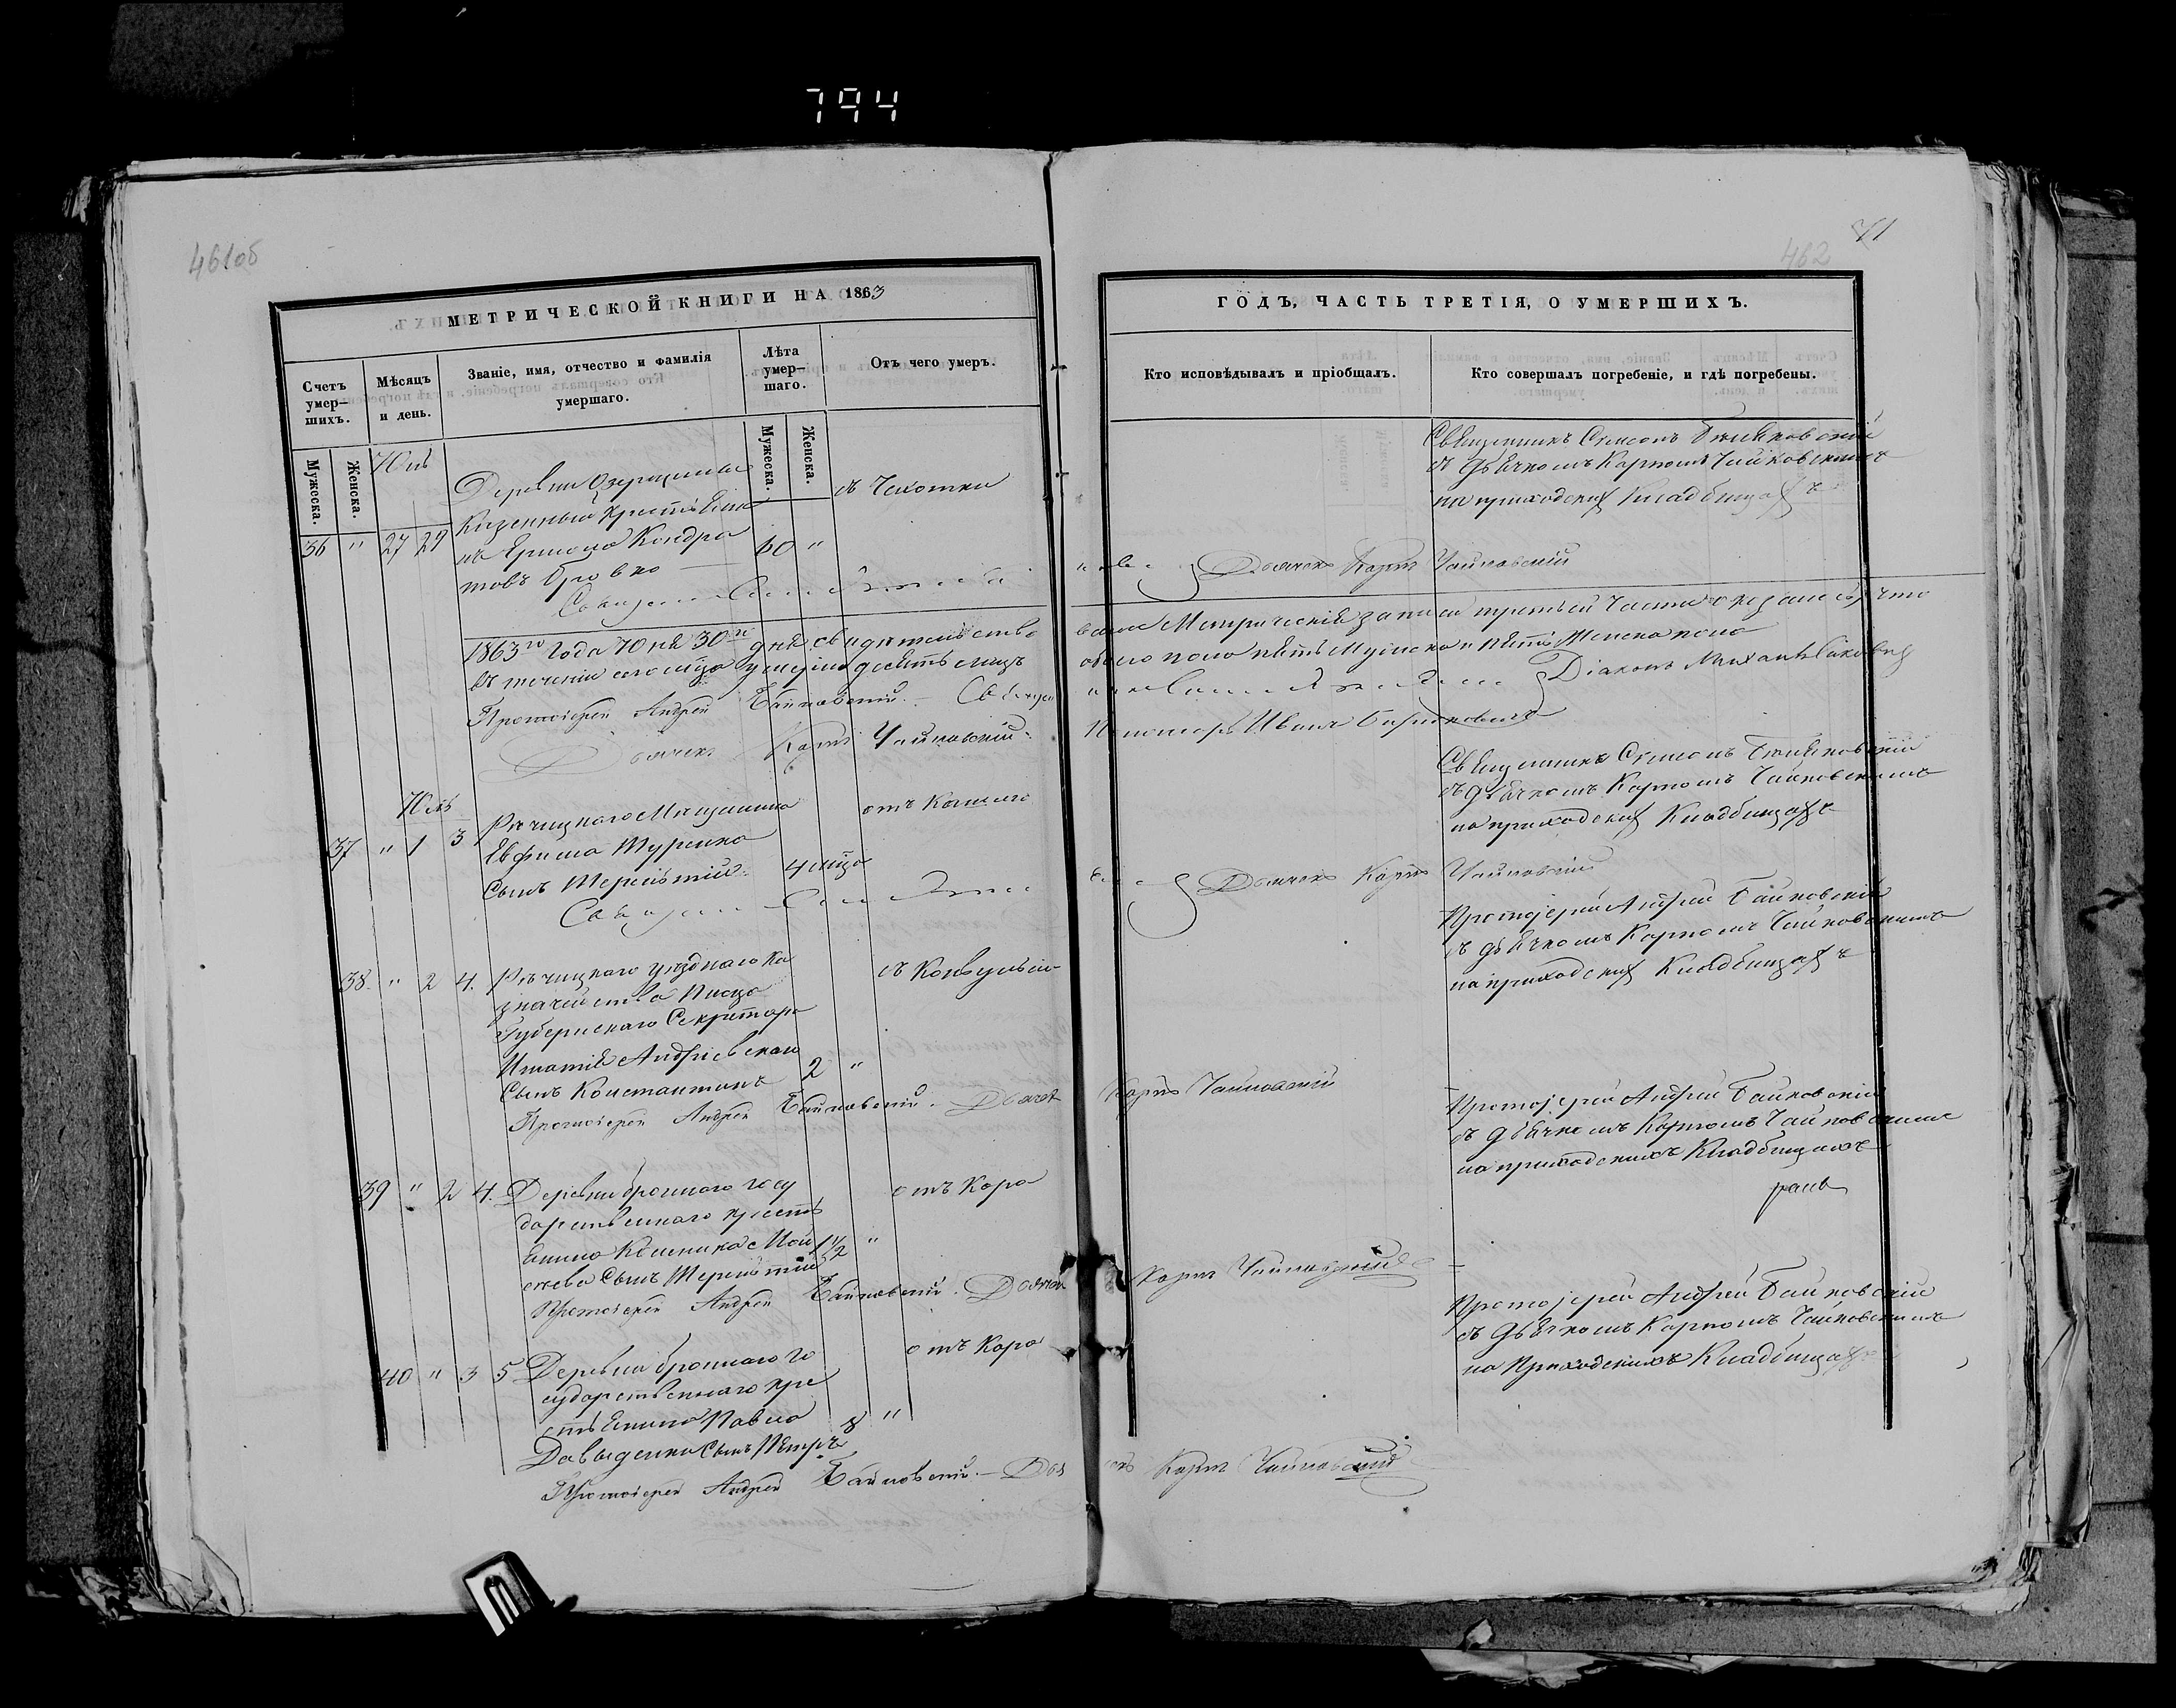 794
461об
МЕТРИЧЕСКОЙ КНИГИ НА 1863
Счетъ умер-
шихъ.
Мѣсяцъ
и день.
Званіе, имя, отчество и фамилія
умершаго.
Лѣта
умер-
шаго.
Отъ чего умеръ.
Мужеска.
Женска.
Мужеска.
Женска.
36 " 27 29
Деревни Озерщины
Казенный Крестьяни
нъ Ермола Кондра
товъ Бровко
60 "
съ Чахотки
1863го Года Юня 30го дня свидетельство
въ течении сего мца умерло десять лицъ
Протоіерей Андрей Байковскій. Священ
Дьячекъ Карпъ Чайковскій.
Юль
37 " 1 3
Речицкого Мещанина
Евфима
Сынъ Терентій
4 мца
отъ Кашля
38. " 2 4.
Речицкаго уезднаго Ка
значейства Писца
Губернскаго Секретаря
Игнатія Андріевскаго
Сынъ Константинъ
2 "
съ Конвульсіи
Протоіерей Андрей Байковскій. Дьячек
39 " 2 4.
Деревни Броннаго госу
дарственнаго кресть
янина
Сынъ Терентій
1 1/2 "
отъ Кора
Протоіерей Андрей Байковскій. Дьячек
40 " 3 5
Деревни Броннаго го
сударственнаго кре
стьянина Павла
Давыденки Сынъ Петръ
8 "
отъ Кора
Протоіерей Андрей Байковскій. — Дья
71
462
ГОДЪ, ЧАСТЬ ТРЕТІЯ, О УМЕРШИХЪ.
Кто исповѣдывалъ и пріобщалъ.
Кто совершалъ погребеніе, и гдѣ погребены.
Священникъ Симеонъ
съ Дьячкомъ Карпомъ Чайковскимъ
на приходскихъ Кладбищахъ
Дьячекъ Карпъ Чайковскій
Метрическія записи третьей Части что
обоего пола пять Мужеска и пять Женска пола
Діаконъ
Пономарь Иванъ
Священникъ Симеонъ
съ Дьячкомъ Карпомъ Чайковскимъ
на приходскихъ Кладбищахъ
Дьячекъ Карпъ Чайковскій
Протоіерей Андрей Байковскій
съ Дьячкомъ Карпомъ Чайковскимъ
на приходскихъ Кладбищахъ
Карпъ Чайковскій
Протоіерей Андрей Байковскій
съ Дьячкомъ Карпомъ Чайковскимъ
на приходскихъ Кладбищахъ
Карпъ Чайковскій
Протоіерей Андрей Байковскій
съ Дьячкомъ Карпомъ Чайковскимъ
на Приходскихъ Кладбищахъ
Карпъ Чайковскій